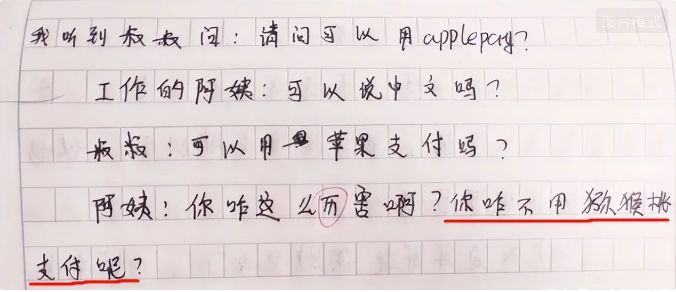 图片模式
我听到叔叔问：请问可以用applepay?
工作的阿姨：可以说中文吗？
叔叔：可以用苹果支付吗？
阿姨：你咋这么历害啊？你咋不用猕猴桃
支付呢？